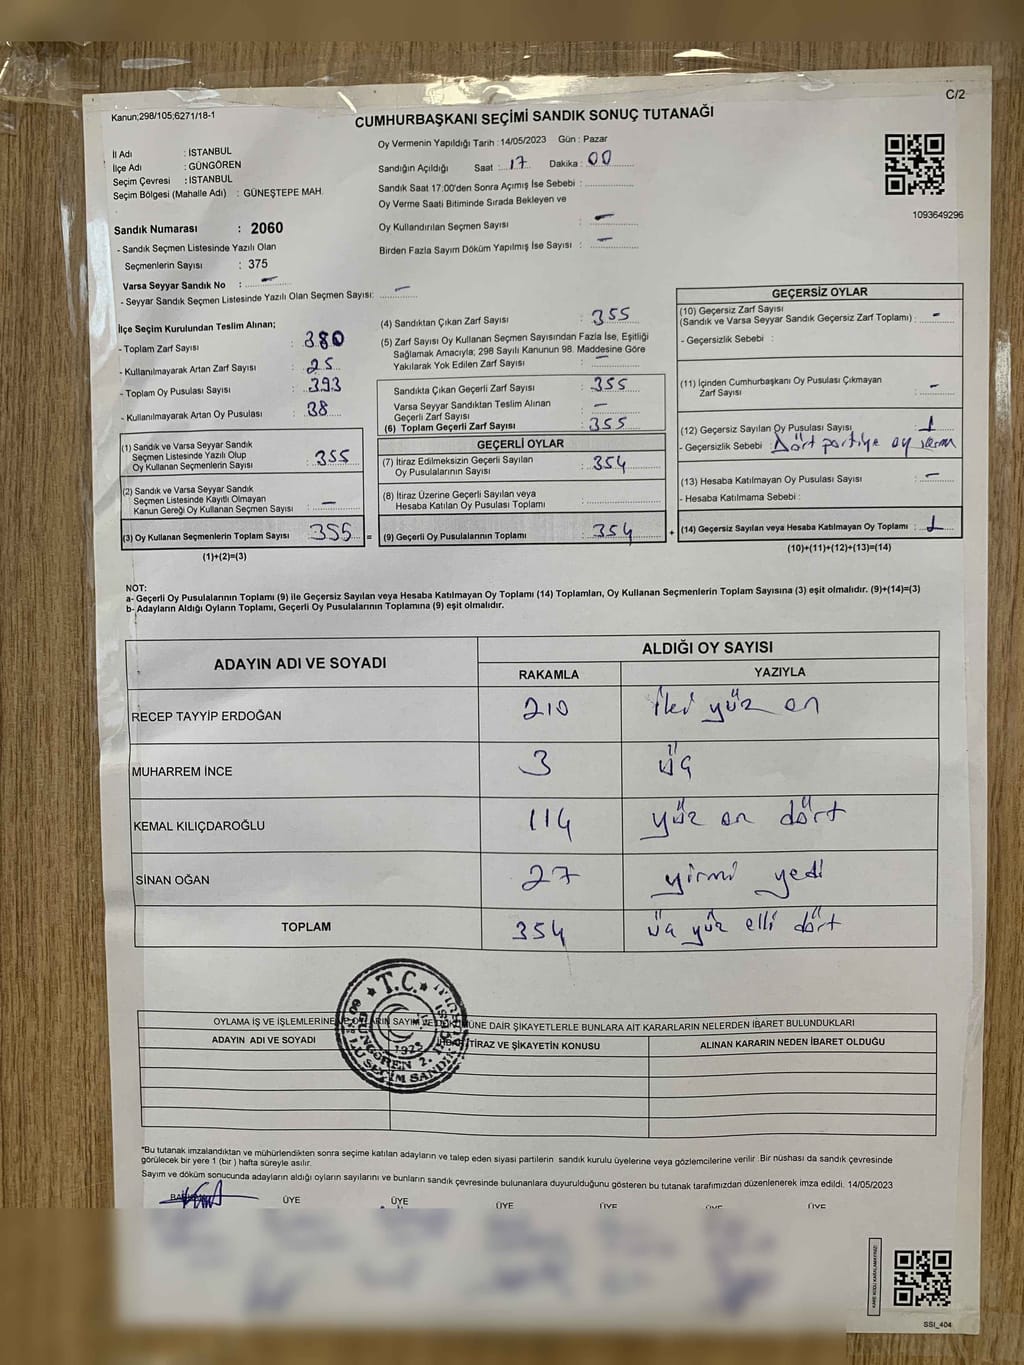 C/2
Kanun;298/105;6271/18-1
CUMHURBAŞKANI SEÇİMİ SANDIK SONUÇ TUTANAĞI
Oy Vermenin Yapıldığı Tarih : 14/05/2023 Gün : Pazar
İl Adı : İSTANBUL
İlçe Adı : GÜNGÖREN
Seçim Çevresi : İSTANBUL
Seçim Bölgesi (Mahalle Adı) : GÜNEŞTEPE MAH.
Sandığın Açıldığı Saat : 17 Dakika : 00
Sandık Saat 17:00'den Sonra Açımış İse Sebebi :
Oy Verme Saati Bitiminde Sırada Bekleyen ve
Oy Kullandırılan Seçmen Sayısı : -
Birden Fazla Sayım Döküm Yapılmış İse Sayısı : -
1093649296
Sandık Numarası : 2060
- Sandık Seçmen Listesinde Yazılı Olan
Seçmenlerin Sayısı : 375
Varsa Seyyar Sandık No : -
- Seyyar Sandık Seçmen Listesinde Yazılı Olan Seçmen Sayısı: -
İlçe Seçim Kurulundan Teslim Alınan;
- Toplam Zarf Sayısı : 380
- Kullanılmayarak Artan Zarf Sayısı : 25
- Toplam Oy Pusulası Sayısı : 393
- Kullanılmayarak Artan Oy Pusulası : 38
(1) Sandık ve Varsa Seyyar Sandık
Seçmen Listesinde Yazılı Olup
Oy Kullanan Seçmenlerin Sayısı : 355
(2) Sandık ve Varsa Seyyar Sandık
Seçmen Listesinde Kayıtlı Olmayan
Kanun Gereği Oy Kullanan Seçmen Sayısı : -
(3) Oy Kullanan Seçmenlerin Toplam Sayısı : 355 =
(1)+(2)=(3)
(4) Sandıktan Çıkan Zarf Sayısı : 355
(5) Zarf Sayısı Oy Kullanan Seçmen Sayısından Fazla İse, Eşitliği
Sağlamak Amacıyla; 298 Sayılı Kanunun 98. Maddesine Göre
Yakılarak Yok Edilen Zarf Sayısı : -
Sandıkta Çıkan Geçerli Zarf Sayısı : 355
Varsa Seyyar Sandıktan Teslim Alınan
Geçerli Zarf Sayısı : -
(6) Toplam Geçerli Zarf Sayısı : 355
GEÇERLİ OYLAR
(7) İtiraz Edilmeksizin Geçerli Sayılan
Oy Pusulalarının Sayısı : 354
(8) İtiraz Üzerine Geçerli Sayılan veya
Hesaba Katılan Oy Pusulası Toplamı :
(9) Geçerli Oy Pusulalarının Toplamı : 354 +
GEÇERSİZ OYLAR
(10) Geçersiz Zarf Sayısı
(Sandık ve Varsa Seyyar Sandık Geçersiz Zarf Toplamı) : -
- Geçersizlik Sebebi :
(11) İçinden Cumhurbaşkanı Oy Pusulası Çıkmayan
Zarf Sayısı : -
(12) Geçersiz Sayılan Oy Pusulası Sayısı : 1
- Geçersizlik Sebebi : Dört partiye oy
(13) Hesaba Katılmayan Oy Pusulası Sayısı : -
- Hesaba Katılmama Sebebi :
(14) Geçersiz Sayılan veya Hesaba Katılmayan Oy Toplamı : 1
(10)+(11)+(12)+(13)=(14)
NOT:
a- Geçerli Oy Pusulalarının Toplamı (9) ile Geçersiz Sayılan veya Hesaba Katılmayan Oy Toplamı (14) Toplamları, Oy Kullanan Seçmenlerin Toplam Sayısına (3) eşit olmalıdır. (9)+(14)=(3)
b- Adayların Aldığı Oyların Toplamı, Geçerli Oy Pusulalarının Toplamına (9) eşit olmalıdır.
ADAYIN ADI VE SOYADI ALDIĞI OY SAYISI
RAKAMLA YAZIYLA
RECEP TAYYİP ERDOĞAN 210 İki yüz on
MUHARREM İNCE 3 üç
KEMAL KILIÇDAROĞLU 114 yüz on dört
SİNAN OĞAN 27 yirmi yedi
TOPLAM 354 üç yüz elli dört
T.C.
GÜNGÖREN 2. İLÇE
1923
OYLAMA İŞ VE İŞLEMLERİNE VE OYLARIN SAYIM VE DÖKÜMÜNE DAİR ŞİKAYETLERLE BUNLARA AİT KARARLARIN NELERDEN İBARET BULUNDUKLARI
ADAYIN ADI VE SOYADI İTİRAZ VE ŞİKAYETİN KONUSU ALINAN KARARIN NEDEN İBARET OLDUĞU
*Bu tutanak imzalandıktan ve mühürlendikten sonra seçime katılan adayların ve talep eden siyasi partilerin sandık kurulu üyelerine veya gözlemcilerine verilir .Bir nüshası da sandık çevresinde
görülecek bir yere 1 (bir ) hafta süreyle asılır.
Sayım ve döküm sonucunda adayların aldığı oyların sayılarını ve bunların sandık çevresinde bulunanlara duyurulduğunu gösteren bu tutanak tarafımızdan düzenlenerek imza edildi. 14/05/2023
ÜYE ÜYE ÜYE ÜYE ÜYE ÜYE
SSI_404